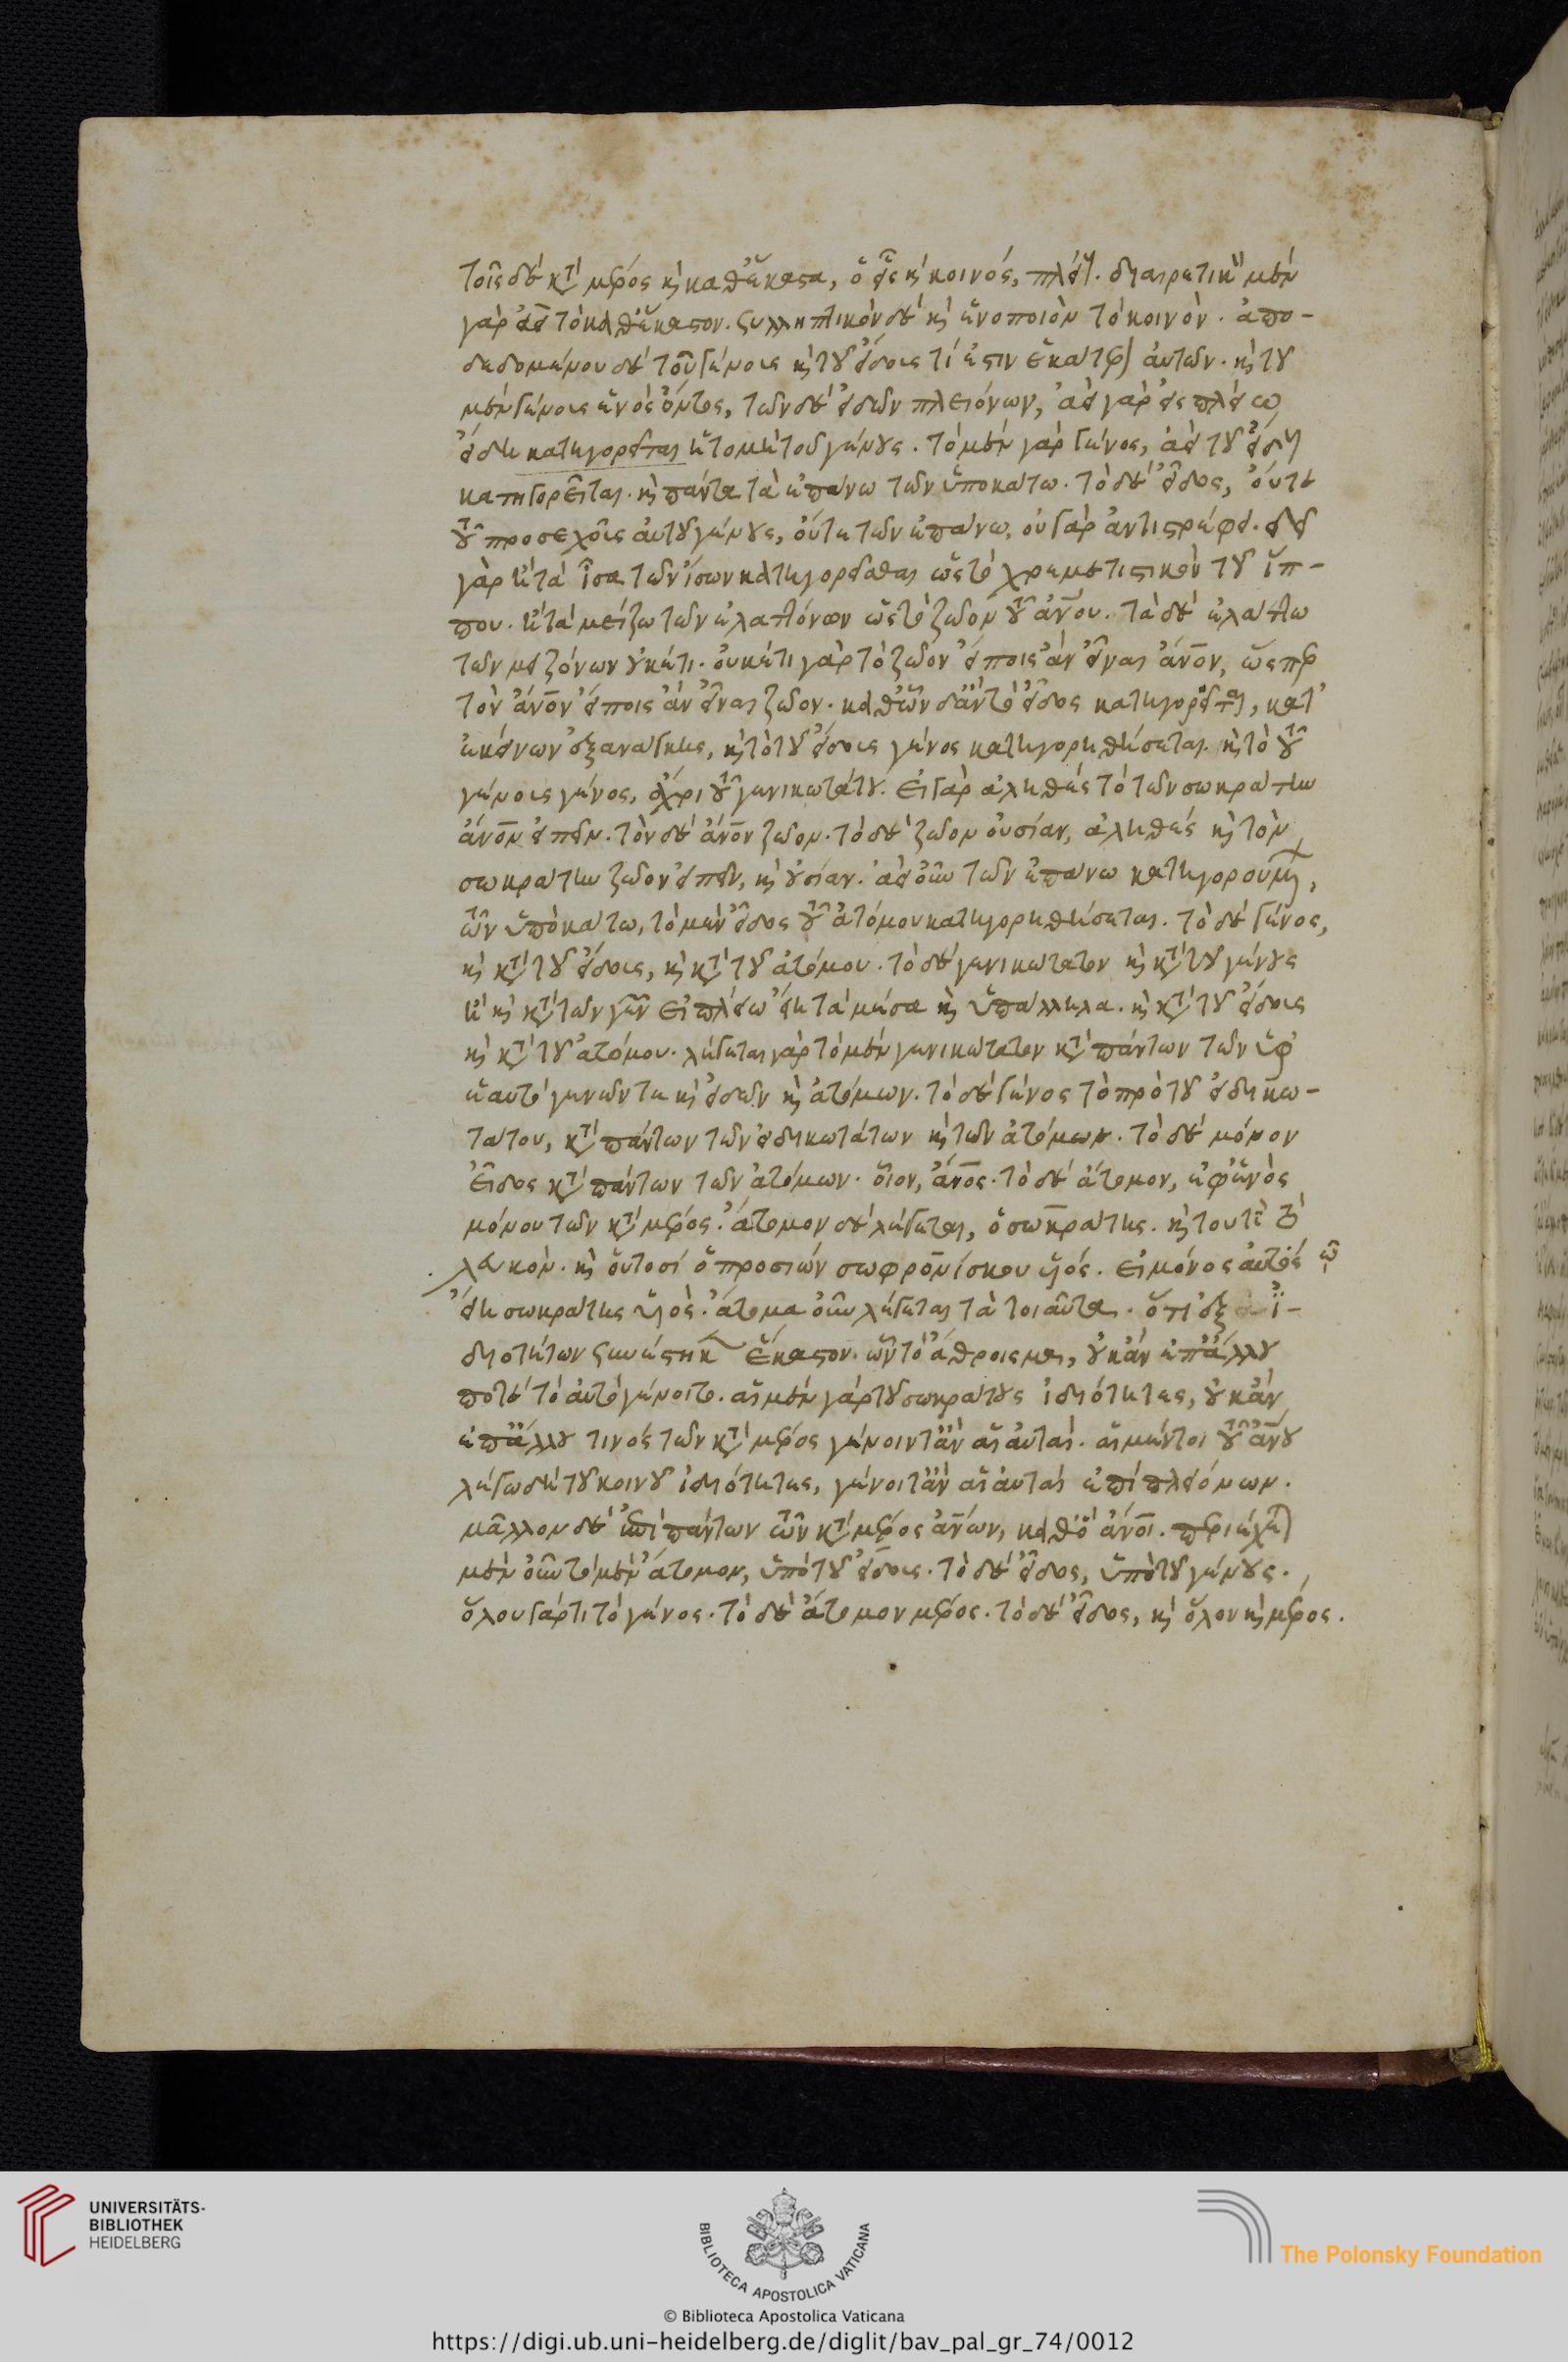 τοῖς δὲ κατὰ μέρος καὶ καθ' ἕκαστα, ὁ εἷς καὶ κοινός, πλείους. διαιρετικὸν μὲν
γὰρ ἀεὶ τὸ καθ' ἕκαστον. συλληπτικὸν δὲ καὶ ἑνοποιὸν τὸ κοινόν. ἀπο-
δεδομένου δὲ τοῦ γένους καὶ τοῦ εἴδους τί ἐστιν ἑκάτερον αὐτῶν. καὶ τοῦ
μὲν γένους ἑνὸς ὄντος, τῶν δὲ εἰδῶν πλειόνων, ἀεὶ γὰρ εἰς πλείω
εἴδη κατηγορεῖται ἡ τομὴ τοῦ γένους. τὸ μὲν γὰρ γένος, ἀεὶ τοῦ εἴδους
κατηγορεῖται. καὶ πάντα τὰ ἐπάνω τῶν ὑποκάτω. τὸ δὲ εἶδος, οὔτε
τοῦ προσεχοῦς αὐτοῦ γένους, οὔτε τῶν ἐπάνω, οὐ γὰρ ἀντιστρέφει. δεῖ
γὰρ ἢ τὰ ἴσα τῶν ἴσων κατηγορεῖσθαι ὡς τὸ χρεμετιστικὸν τοῦ ἵπ-
που. ἢ τὰ μείζω τῶν ἐλαττόνων ὡς τὸ ζῶον τοῦ ἀνου. τὰ δὲ ἐλάττω
τῶν μειζόνων οὐκέτι. οὐκέτι γὰρ τὸ ζῶον εἴποις ἂν εἶναι ἄνον, ὥσπερ
τὸν ἄνον εἴποις ἂν εἶναι ζῶον. καθ' ὧν δ' ἂν τὸ εἶδος κατηγορεῖται, κατ'
ἐκείνων ἐξ ἀνάγκης, καὶ τὸ τοῦ εἴδους γένος κατηγορηθήσεται. καὶ τὸ τοῦ
γένους γένος, ἄχρι τοῦ γενικωτάτου. εἰ γὰρ ἀληθὲς τὸ τὸν σωκράτην
ἄνον εἰπεῖν. τὸν δὲ ἄνον ζῶον. τὸ δὲ ζῶον οὐσίαν, ἀληθὲς καὶ τὸν
σωκράτην ζῶον εἰπεῖν, καὶ οὐσίαν. ἀεὶ οὖν τῶν ἐπάνω κατηγορουμένων,
τῶν ὑποκάτω, τὸ μὲν εἶδος τοῦ ἀτόμου κατηγορηθήσεται. τὸ δὲ γένος,
καὶ κατὰ τοῦ εἴδους, καὶ κατὰ τοῦ ἀτόμου. τὸ δὲ γενικώτατον καὶ κατὰ τοῦ γένους
ἢ καὶ κατὰ τῶν γενῶν εἰ πλείω εἴη τὰ μέσα καὶ ὑπάλληλα. καὶ κατὰ τοῦ εἴδους
καὶ κατὰ τοῦ ἀτόμου. λέγεται γὰρ τὸ μὲν γενικώτατον κατὰ πάντων τῶν ὑφ'
ἑαυτὸ γενῶν τε καὶ εἰδῶν καὶ ἀτόμων. τὸ δὲ γένος τὸ πρὸ τοῦ εἰδικω-
τάτου, κατὰ πάντων τῶν εἰδικωτάτων καὶ τῶν ἀτόμων. τὸ δὲ μόνον
εἶδος κατὰ πάντων τῶν ἀτόμων. οἷον, ἄνος. τὸ δὲ ἄτομον, ἐφ' ἑνὸς
μόνου τῶν κατὰ μέρος. ἄτομον δὲ λέγεται, ὁ σωκράτης. καὶ τουτὶ τὸ
λευκόν. καὶ οὑτοσὶ ὁ προσιὼν σωφρονίσκου υἱός. εἰ μόνος αὐτῷ
εἴη σωκράτης υἱός. ἄτομα οὖν λέγεται τὰ τοιαῦτα. ὅτι ἐξ ἰ-
διοτήτων συνέστηκεν ἕκαστον. ὧν τὸ ἄθροισμα, οὐκ ἂν ἐπ' ἄλλου
ποτὲ τὸ αὐτὸ γένοιτο. αἱ μὲν γὰρ τοῦ σωκράτους ἰδιότητες, οὐκ ἂν
ἐπ' ἄλλου τινὸς τῶν κατὰ μέρος γένοιντ' ἂν αἱ αὐταί. αἱ μέντοι τοῦ ἀνου
λέγω δὴ τοῦ κοινοῦ ἰδιότητες, γένοιτ' ἂν αἱ αὐταὶ ἐπὶ πλειόνων.
μᾶλλον δὲ ἐπὶ πάντων τῶν κατὰ μέρος ἀνων, καθ' ὃ ἄνοι. περιέχεται
μὲν οὖν τὸ μὲν ἄτομον, ὑπὸ τοῦ εἴδους. τὸ δὲ εἶδος, ὑπὸ τοῦ γένους.
ὅλον γάρ τι τὸ γένος. τὸ δὲ ἄτομον μέρος. τὸ δὲ εἶδος, καὶ ὅλον καὶ μέρος.
UNIVERSITÄTS-
BIBLIOTHEK
HEIDELBERG
BIBLIOTECA APOSTOLICA VATICANA
The Polonsky Foundation
© Biblioteca Apostolica Vaticana
https://digi.ub.uni-heidelberg.de/diglit/bav_pal_gr_74/0012